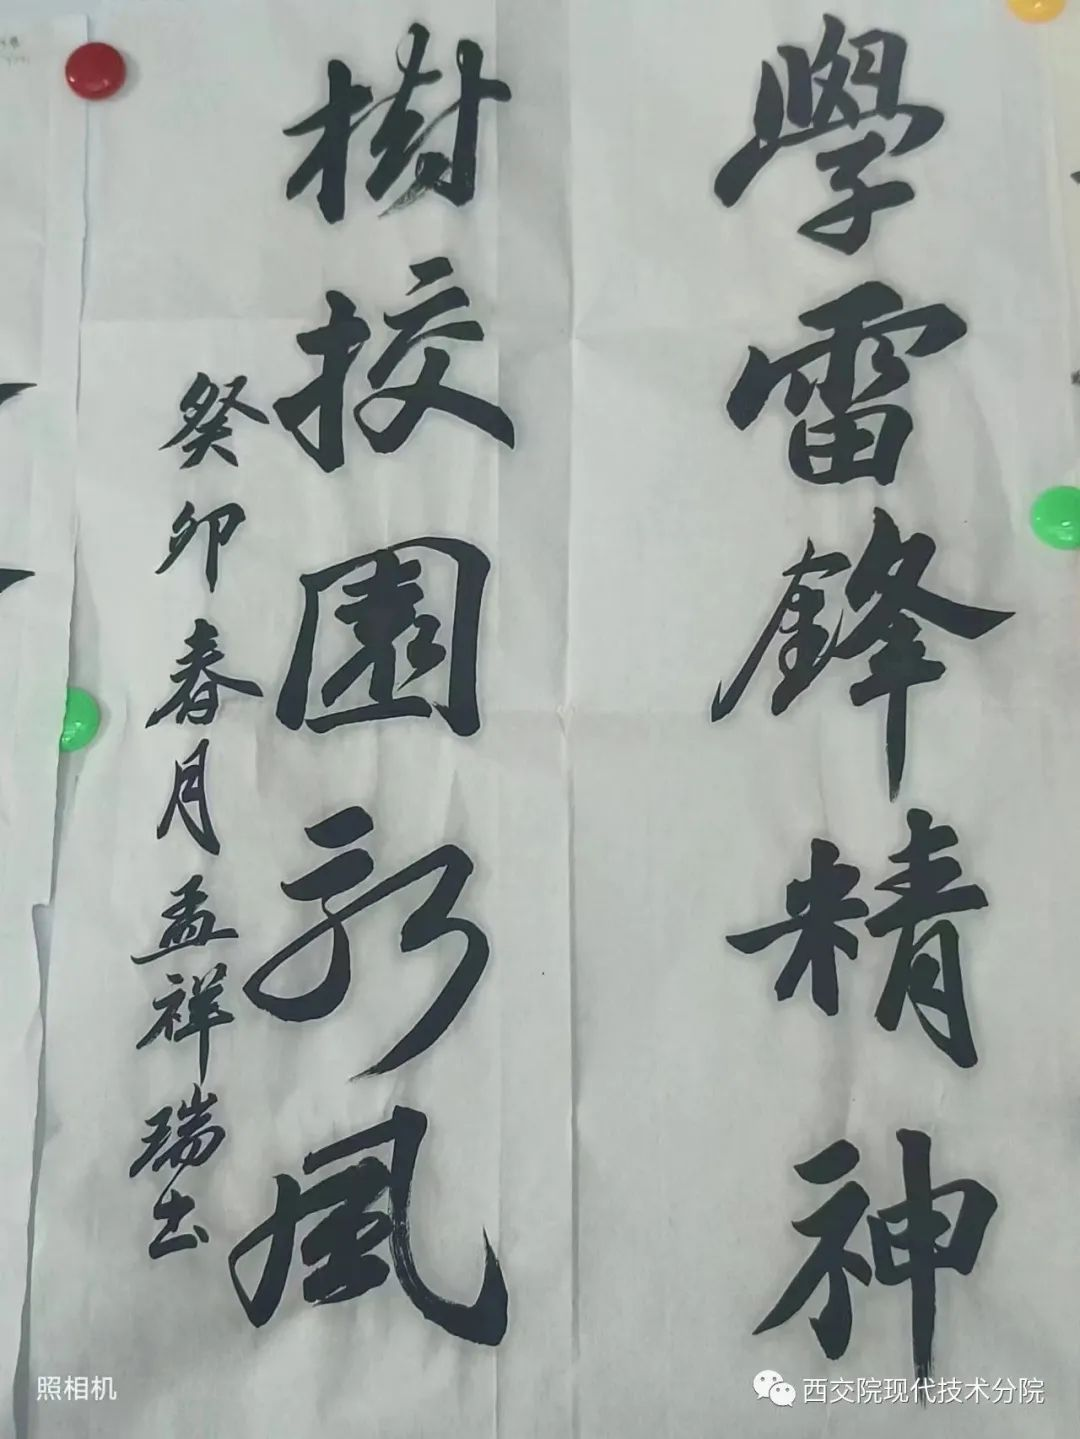 學雷鋒精神
樹校園新風
癸卯春月孟祥瑞书
照相机
西交院现代技术分院